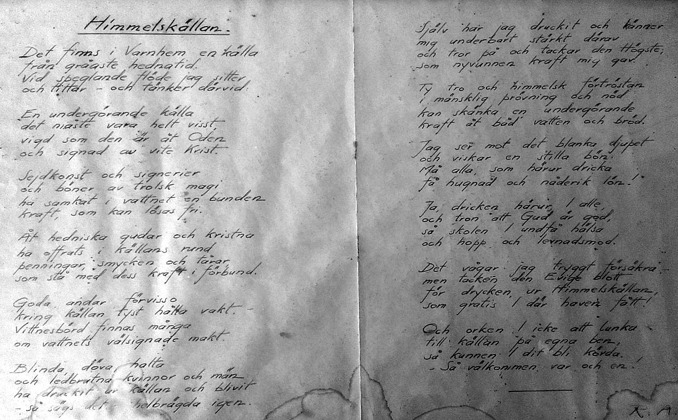 Himmelskållan.
Det finns i Varnhem en källa
från gråaste hednatid.
Vid speglande flöde jag sitter
och tittar - och tänker därvid.
En undergörande källa
det måste vara helt visst,
vigd som den är åt Oden
och signad av vite Krist.
Sejdkonst och signerier
och böner av trolsk magi
ha samlat i vattnet en bunden
kraft, som kan lösas fri.
Åt hedniska gudar och kristna
ha offrats i källans rund
penningar, smycken och tårar
som stå med dess kraft i förbund.
Goda andar förvisso
kring källan tyst hålla vakt.
Vittnesbörd finnas många
om vattnets välsignade makt.
Blinda, döva halta
och ledbrutna kvinnor och män
ha druckit ur källan och blivit
- så sägs det - helbrägda igen.
Själv har jag druckit och känner
mig underbart stärkt därav
och tror på och tackar den Högste,
som nyvunnen kraft mig gav.
Ty tro och himmelsk förtröstan
i mänsklig prövning och nöd
kan skänka en undergörande
kraft åt båd vatten och bröd.
Jag ser mot det blanka djupet
och viskar en stilla bön:
Må alla, som härur dricka
få hugnad och näderik lön!
Ja, dricken härur, I alle,
och tron att Gud är god,
så skolen I undfå hälsa
och hopp och levnadsmod.
Det vågar jag tryggt försäkra:
men tacken den Evige blott
för drycken ur Himmelskällan,
som gratis I där haven fått!
Och orken I icke att lunka
till källan på egna ben,
så kunnen I dit bli körda.
- Så välkommen var och en!
K. A